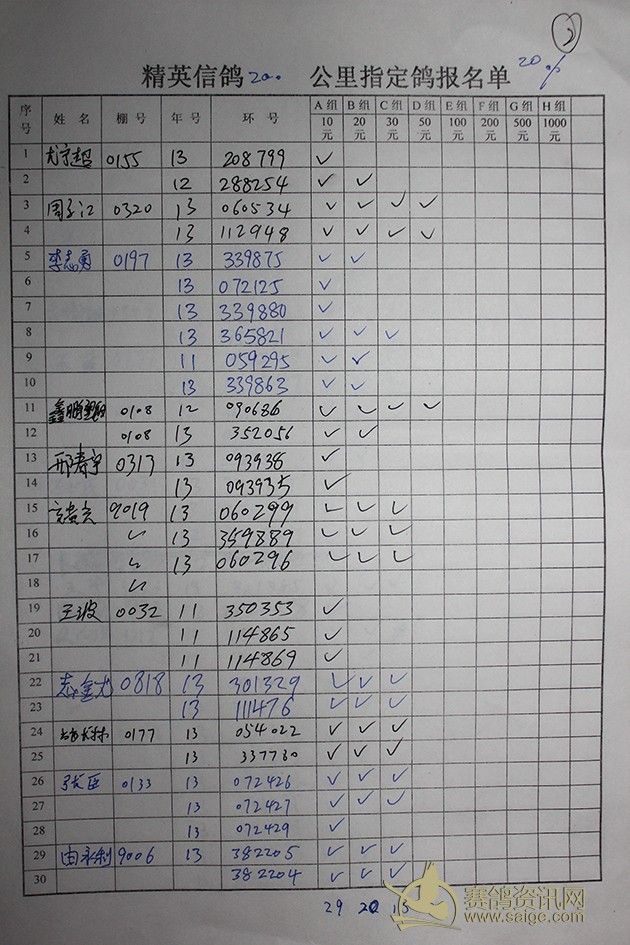 2
精英信鸽200 公里指定鸽报名单 20%
序号 姓名 棚号 年号 环号 A组 B组 C组 D组 E组 F组 G组 H组
10元 20元 30元 50元 100元 200元 500元 1000元
1 0155 13 208799 ✓
2 12 288254 ✓ ✓
3 0320 13 060534 ✓ ✓ ✓ ✓
4 13 112948 ✓ ✓ ✓ ✓
5 李志勇 0197 13 339875 ✓ ✓
6 13 072125 ✓
7 13 339880 ✓
8 13 365821 ✓ ✓ ✓
9 11 059295 ✓ ✓
10 13 339863 ✓ ✓
11 0108 12 090686 ✓ ✓ ✓ ✓
12 0108 13 352056 ✓ ✓
13 邢寿宇 0313 13 093938 ✓
14 13 093935 ✓
15 9019 13 060299 ✓ ✓ ✓
16 〃 13 359889 ✓ ✓ ✓
17 〃 13 060296 ✓ ✓ ✓
18 〃
19 王波 0032 11 350353 ✓
20 11 114865 ✓
21 11 114869 ✓
22 0818 13 301329 ✓ ✓ ✓
23 13 111476 ✓ ✓ ✓
24 0177 13 054022 ✓ ✓ ✓
25 13 337780 ✓ ✓ ✓
26 张臣 0133 13 072426 ✓ ✓ ✓
27 13 072427 ✓ ✓ ✓
28 13 072429 ✓
29 由永利 9006 13 382205 ✓ ✓ ✓
30 382204 ✓ ✓ ✓
29 20 15
赛鸽资讯网
www.saige.com